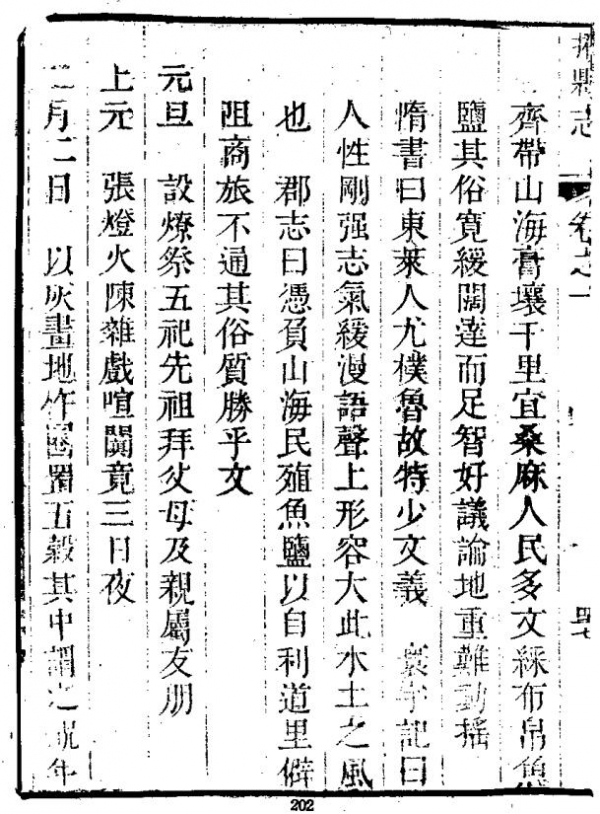 志 卷之一
齊帶山海膏壤千里宜桑麻人民多文綵布帛魚
鹽其俗寬緩闊達而足智好議論地重難動搖
惰書曰東萊人尤樸魯故特少文義 寰宇記曰
人性剛强志氣緩漫語聲上形容大此水土之風
也 郡志曰憑負山海民殖魚鹽以自利道里僻
阻商旅不通其俗質勝乎文
元旦 設燎祭五祀先祖拜父母及親屬友朋
上元 張燈火陳雜戲喧鬧竟三日夜
二月二日 以灰畫地作囷置五穀其中謂之
202